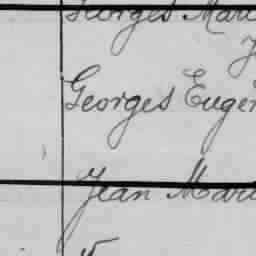 Georges Mar
Georges Eugèn
Jean Mari